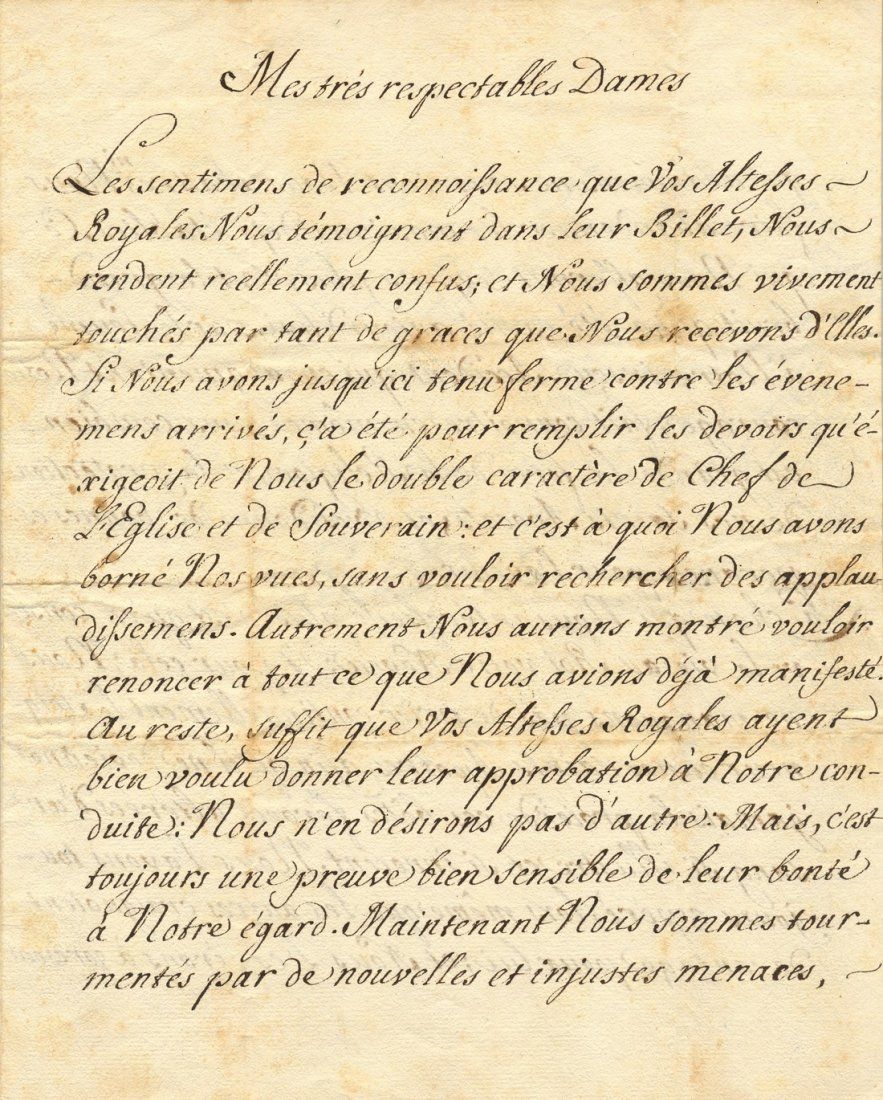 Mes trés respectables Dames
Les sentimens de reconnoissance que Vos Altesses
Royales Nous témoignent dans leur Billet, Nous
rendent reellement confus; et Nous sommes vivement
touchés par tant de graces que Nous recevons d'Elles.
Si Nous avons jusqu'ici tenu ferme contre les évene-
mens arrivés, ç'a été pour remplir les devoirs qu'é-
xigeoit de Nous le double caractère de Chef de
L'Eglise et de Souverain: et c'est à quoi Nous avons
borné Nos vues, sans vouloir rechercher des applau-
dissemens. Autrement Nous aurions montré vouloir
renoncer à tout ce que Nous avions déjà manifesté.
Au reste, suffit que Vos Altesses Royales ayent
bien voulu donner leur approbation à Notre con-
duite: Nous n'en désirons pas d'autre: Mais, c'est
toujours une preuve bien sensible de leur bonté
à Notre égard. Maintenant Nous sommes tour-
mentés par de nouvelles et injustes menaces,